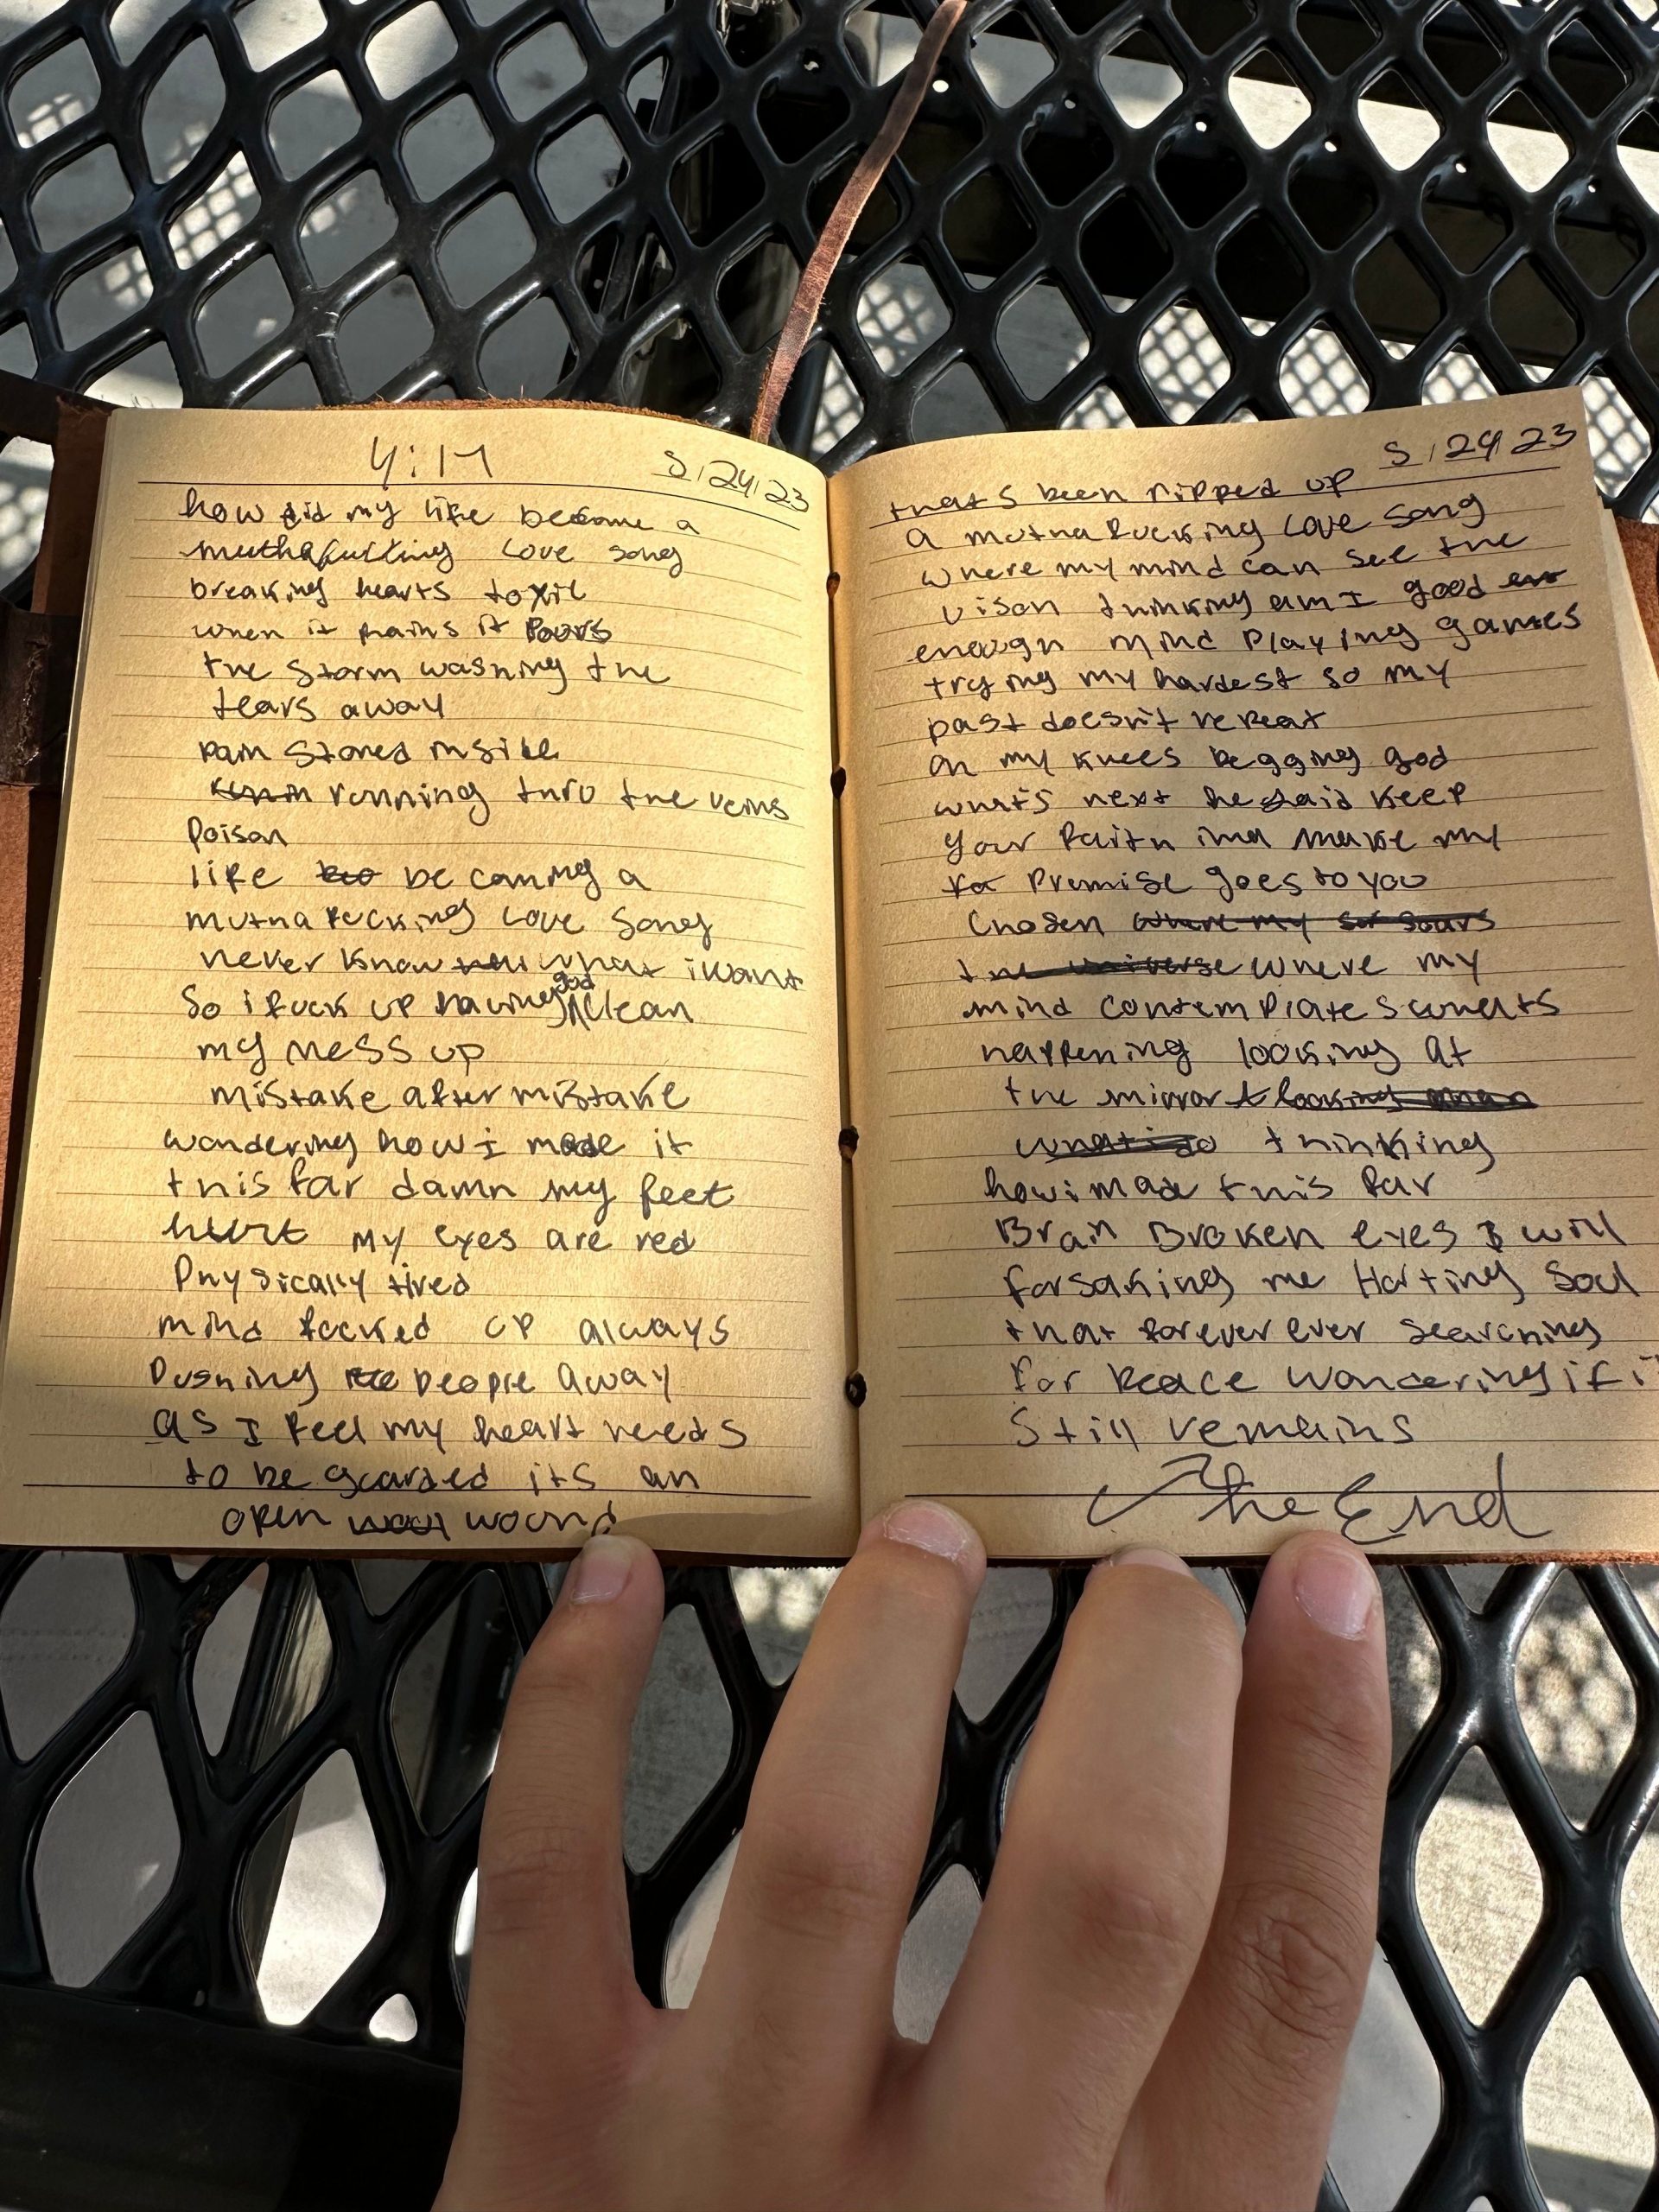 4:17
5/24/23
how did my life become a
muthafucking love song
breaking hearts toxic
when it rains it pours
the storm washing the
tears away
pain stored inside
running thro the veins
Poison
life becoming a
muthafucking love song
never know what i want
so i fuck up having god clean
my mess up
mistake after mistake
wondering how I made it
this far damn my feet
hurt my eyes are red
Physically tired
mind fucked up always
Pushing people away
as I feel my heart needs
to be guarded its an
open wound
5/24/23
thats been ripped up
a muthafucking love song
where my mind can see the
vison thinking am I good
enough mind playing games
trying my hardest so my
past doesn't repeat
on my knees begging god
whats next he said keep
your faith ima make my
promise goes to you
Chosen where my
the universe where my
mind contemplates whats
happening looking at
the mirror looking
thinking
how i made this far
Brain Broken eyes I will
forsaking me Hurting Soul
that forever ever searching
for peace wondering if i
Still remains
The End